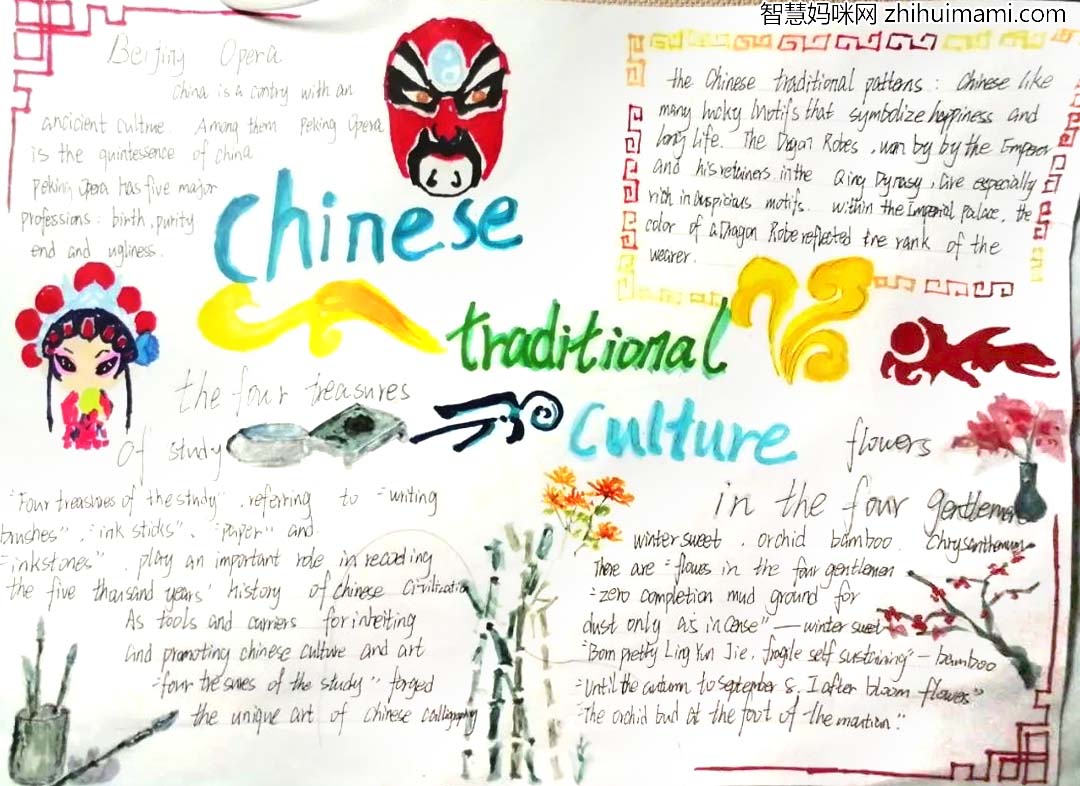 智慧妈咪网 zhihuimami.com
Beijing Opera
China is a contry with an
ancicient culture. Among them Peking Opera
is the quintessence of china
Peking Opera has five major
professions: birth, purity
end and ugliness.
the Chinese traditional patterns: Chinese like
many lucky Motifs that symbolize happiness and
long life. The Dragon Robes, worn by by the Emperor
and his retainers in the Qing Dynasy, are especially
rich in auspicious motifs. Within the Imperial Palace, the
color of a Dragon Robe reflected the rank of the
wearer.
Chinese
traditional
culture
the four treasures
Of study
"Four treasures of the study", referring to "writing
brushes", "ink sticks", "paper" and
"inkstones", play an important role in recoding
the five thousand years' history of chinese Civilization
As tools and carriers for inheiting
and promoting chinese culture and art
"four tresures of the study" forged
the unique art of chinese calligraphy
flowers
in the four gentlemen
winter sweet, orchid bamboo, Chrysanthemum
There are "flowes in the four gentlemen
"zero completion mud ground for
dust only as incense" — winter sweet
"Born pretty Ling Yun Jie, fragile self sustaining" — bamboo
"Until the autumn to September 8, I after bloom flowers"
"The orchid bud at the foot of the